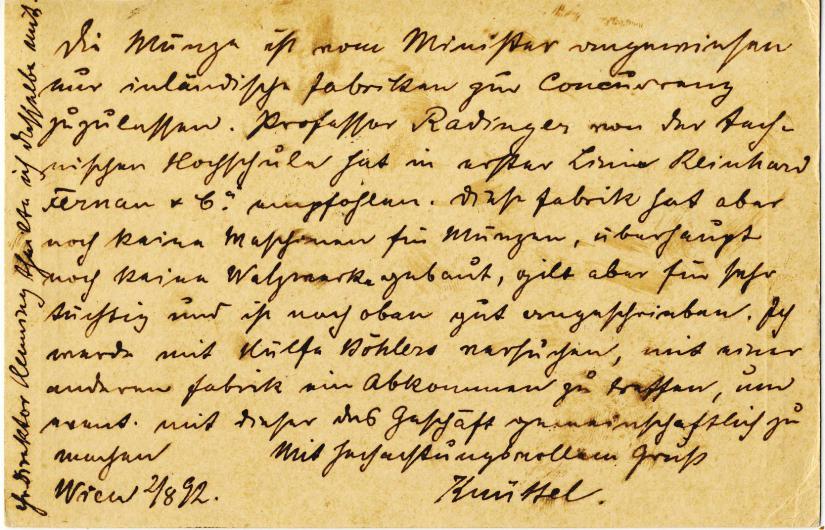 Die Münze ist vom Minister angewiesen
nur inländische Fabriken zur Concurrenz
zuzulassen. Professor Radinger von der tech-
nischen Hochschule hat in erster Linie Reinhard
Fernau & Co. empfohlen. Diese Fabrik hat aber
noch keine Maschinen für Münzen, überhaupt
noch keine Walzwerke gebaut, gilt aber für sehr
tüchtig und ist nach oben gut angeschrieben. Ich
werde mit Hülfe Böhlers versuchen, mit einer
anderen Fabrik ein Abkommen zu treffen, um
event. mit dieser das Geschäft gemeinschaftlich zu
machen
Mit hochachtungsvollem Gruß
Wien 2/8 92.
Knüttel.
Hr. Direktor theilte ich dasselbe mit.